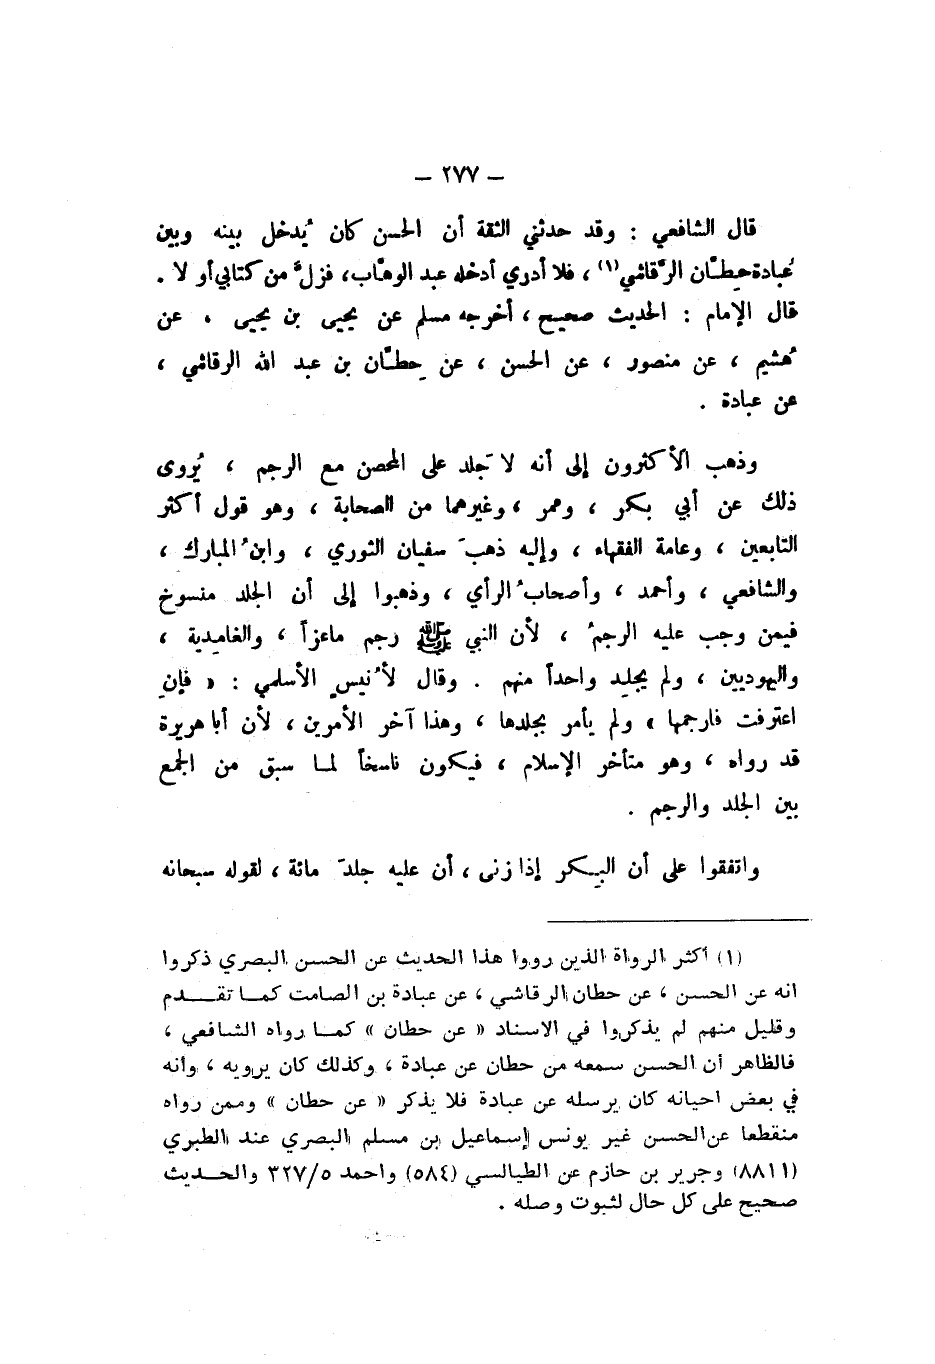 — ٢٧٧ —
قال الشافعي : وقد حدثني الثقة أن الحسن كان يُدخل بينه وبين
عُبادة حِطَّان الرَّقاشي(١) ، فلا أدري أدخله عبد الوهّاب، فزلَّ من كتابي أو لا .
قال الإمام : الحديث صحيح ، أخرجه مسلم عن يحيى بن يحيى ، عن
هُشيم ، عن منصور ، عن الحسن ، عن حِطَّان بن عبد الله الرقاشي ،
عن عبادة .
وذهب الأكثرون إلى أنه لا جَلد على المحصن مع الرجم ، يُروى
ذلك عن أبي بكر ، وعمر ، وغيرهما من الصحابة ، وهو قول أكثر
التابعين ، وعامة الفقهاء ، وإليه ذهبَ سفيان الثوري ، وابنُ المبارك ،
والشافعي ، وأحمد ، وأصحابُ الرأي ، وذهبوا إلى أن الجلد منسوخ
فيمن وجب عليه الرجمُ ، لأن النبي ﷺ رجم ماعزاً ، والغامدية ،
واليهوديين ، ولم يجلِد واحداً منهم . وقال لأُنيسٍ الأسلمي : « فإنِ
اعترفت فارجمها » ولم يأمر بجلدها ، وهذا آخر الأمرين ، لأن أبا هريرة
قد رواه ، وهو متأخر الإسلام ، فيكون ناسخاً لما سبق من الجمع
بين الجلد والرجم .
واتفقوا على أن البِكر إذا زنى ، أن عليه جلدَ مائة ، لقوله سبحانه
(١) أكثر الرواة الذين رووا هذا الحديث عن الحسن البصري ذكروا
انه عن الحسن ، عن حطان الرقاشي ، عن عبادة بن الصامت كما تقدم
وقليل منهم لم يذكروا في الاسناد « عن حطان » كما رواه الشافعي ،
فالظاهر أن الحسن سمعه من حطان عن عبادة ، وكذلك كان يرويه ، وأنه
في بعض احيانه كان يرسله عن عبادة فلا يذكر « عن حطان » وممن رواه
منقطعا عن الحسن غير يونس إسماعيل بن مسلم البصري عند الطبري
(٨٨١١) وجرير بن حازم عن الطيالسي (٥٨٤) واحمد ٣٢٧/٥ والحديث
صحيح على كل حال لثبوت وصله .